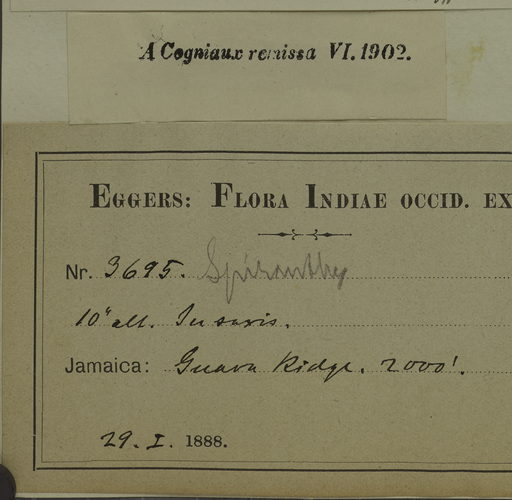 A Cogniaux remissa VI. 1902.
EGGERS: FLORA INDIAE OCCID. EX
Nr. 3695. Spiranthes
10" alt. In saxis.
Jamaica: Guava Ridge. 2000'.
29. I. 1888.